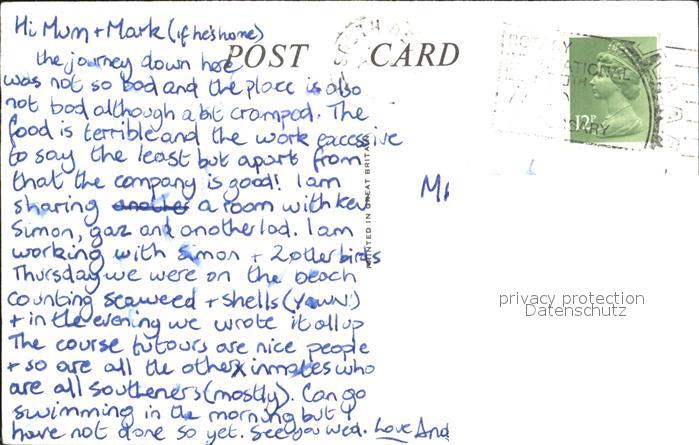 Hi Mum + Mark (if he's home)
the journey down here
was not so bad and the place is also
not bad although a bit cramped. The
food is terrible and the work excessive
to say the least but apart from
that the company is good! I am
sharing another a room with kev
Simon, gaz and another lad. I am
working with Simon + 2 other birds
Thursday we were on the beach
counting seaweed + shells (yawn!)
+ in the evening we wrote it all up
The course tutours are nice people
+ so are all the other inmates who
are all southeners (mostly). Can go
swimming in the morning but I
have not done so yet. See you wed. Love And
POST CARD
PRINTED IN GREAT BRITAIN
ROTARY
12P
privacy protection
Datenschutz